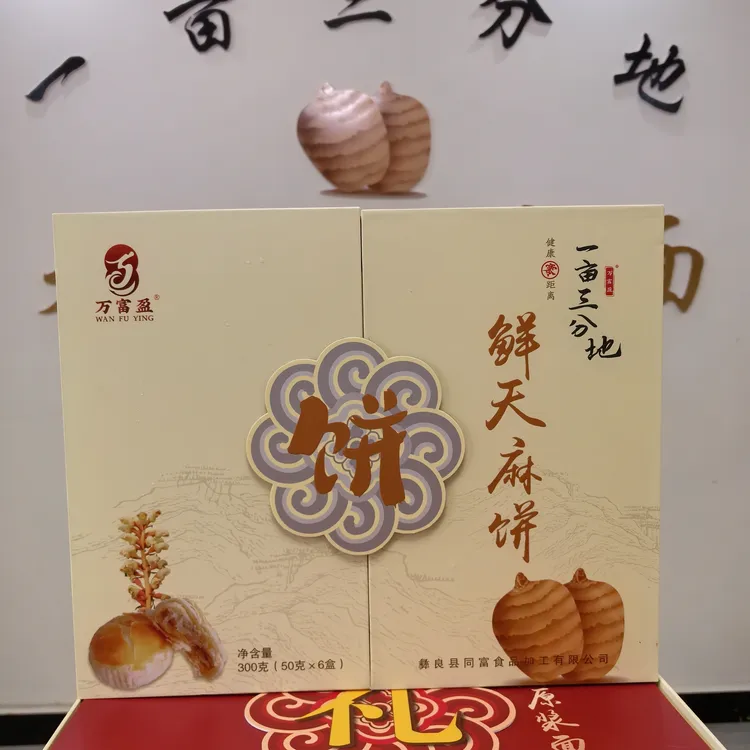 一亩三分地
万富盈®
WAN FU YING
饼
净含量
300克（50克×6盒）
健康
距离
一亩三分地
万富盈®
鲜天麻饼
彝良县同富食品加工有限公司
礼
原浆面